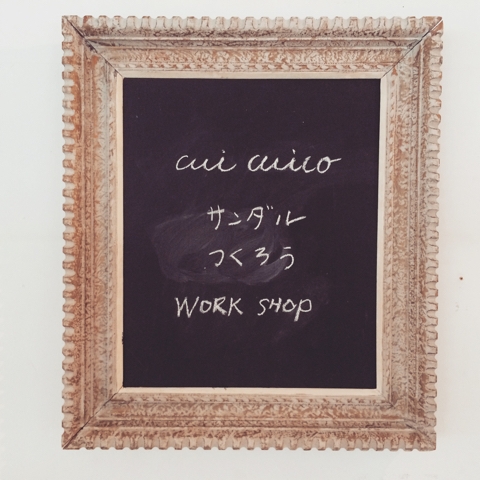 cui cuico
サンダル
つくろう
WORK SHOP